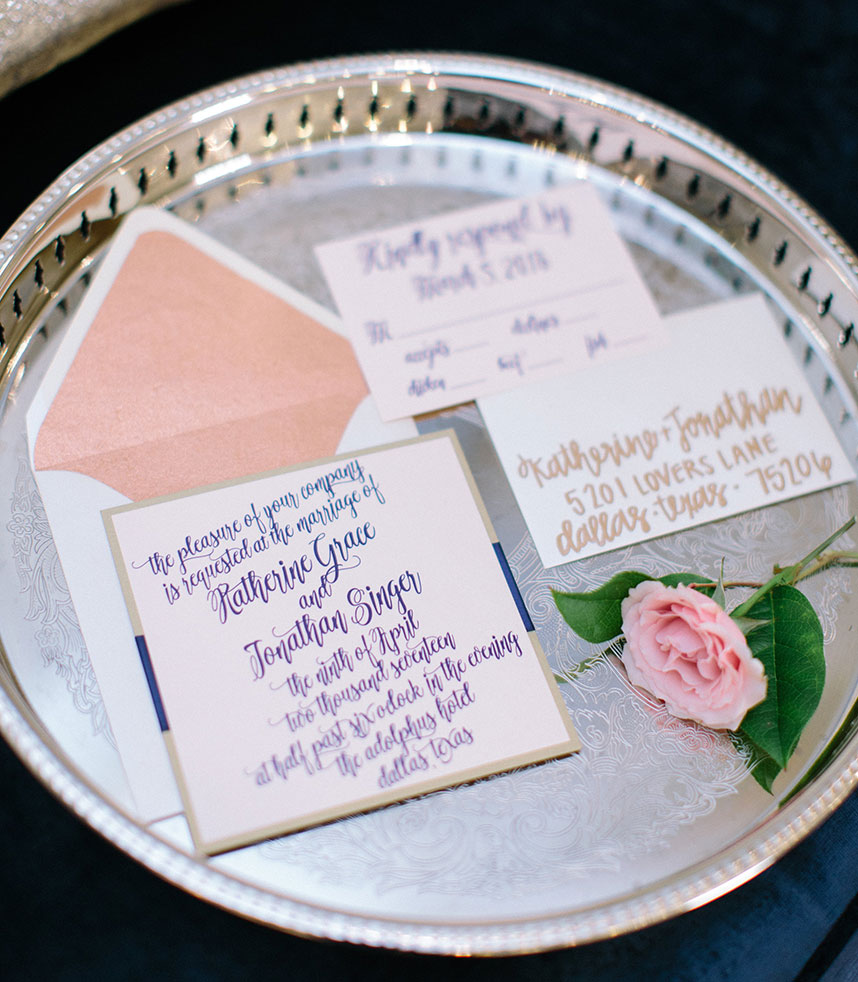 kindly respond by
March 5, 2018
M
accepts declines
chicken beef fish
Katherine + Jonathan
5201 LOVERS LANE
dallas • texas • 75206
the pleasure of your company
is requested at the marriage of
Katherine Grace
and
Jonathan Singer
the ninth of April
two thousand seventeen
at half past six o'clock in the evening
the adolphus hotel
dallas texas